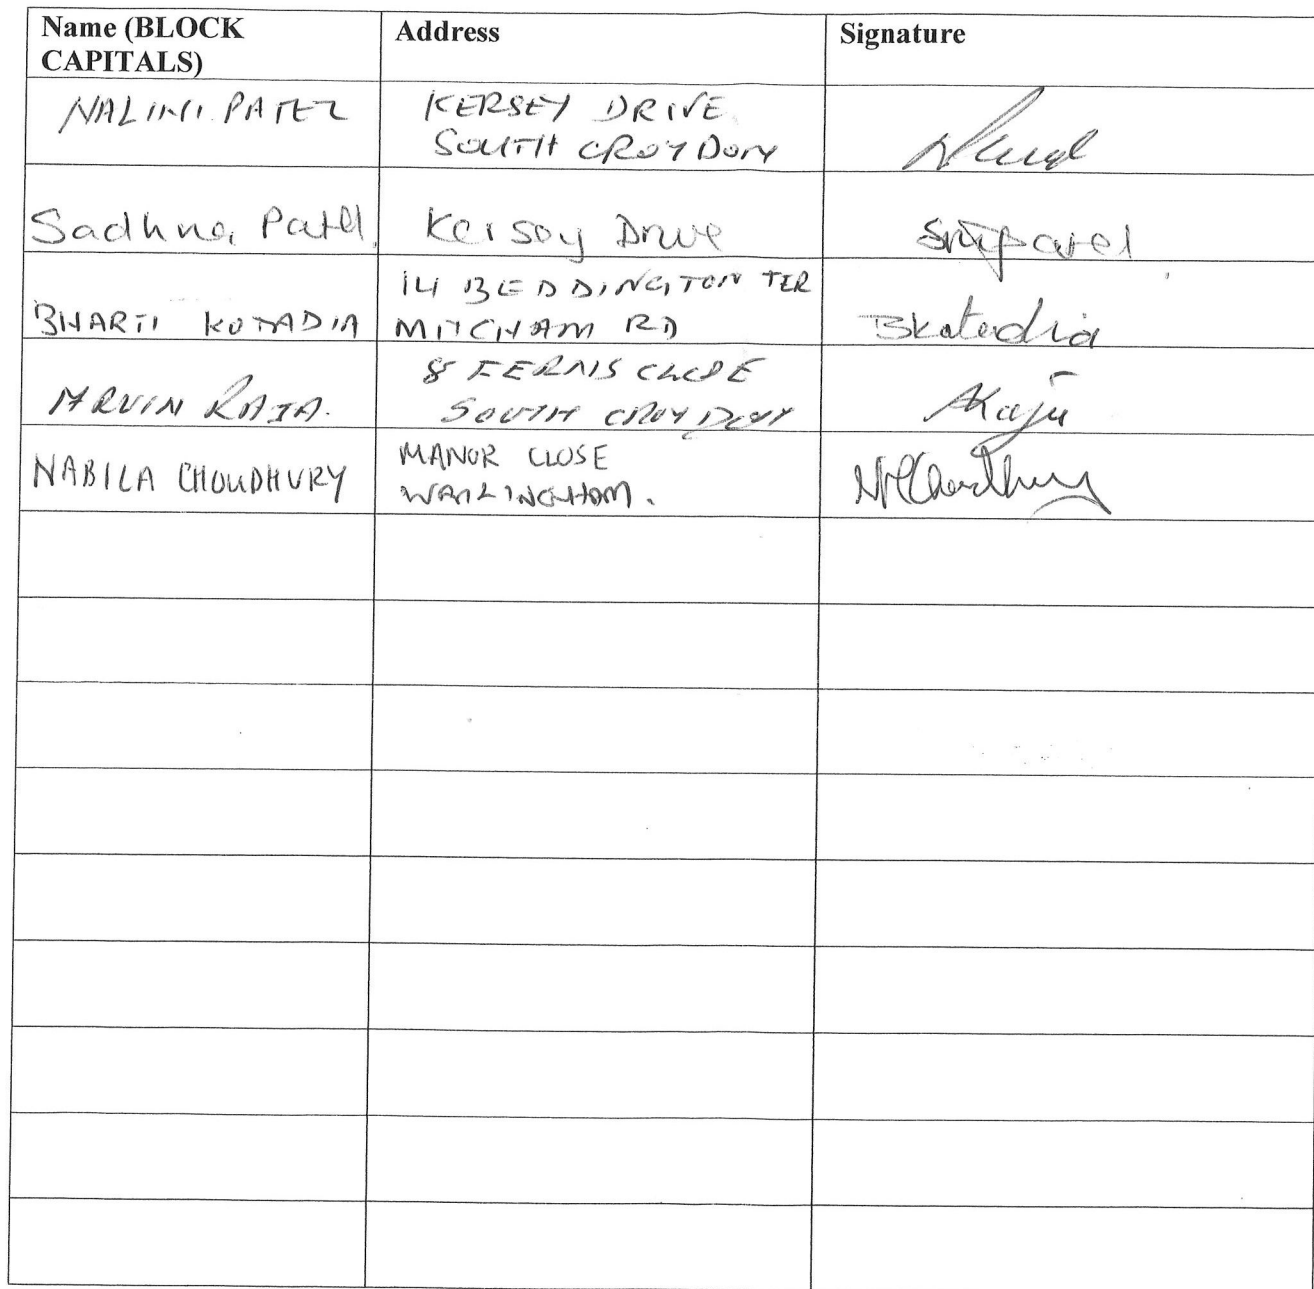 Name (BLOCK
CAPITALS)
Address
Signature
NALINI PATEL
KERSEY DRIVE
SOUTH CROYDON
Sadhna Patel
Kersey Drive
BHARTI KOTADIA
14 BEDDINGTON TER
MITCHAM RD
BKotadia
ARVIN RAJA.
8 FERNS CLOSE
SOUTH CROYDON
NABILA CHOUDHURY
MANOR CLOSE
WARLINGHAM.